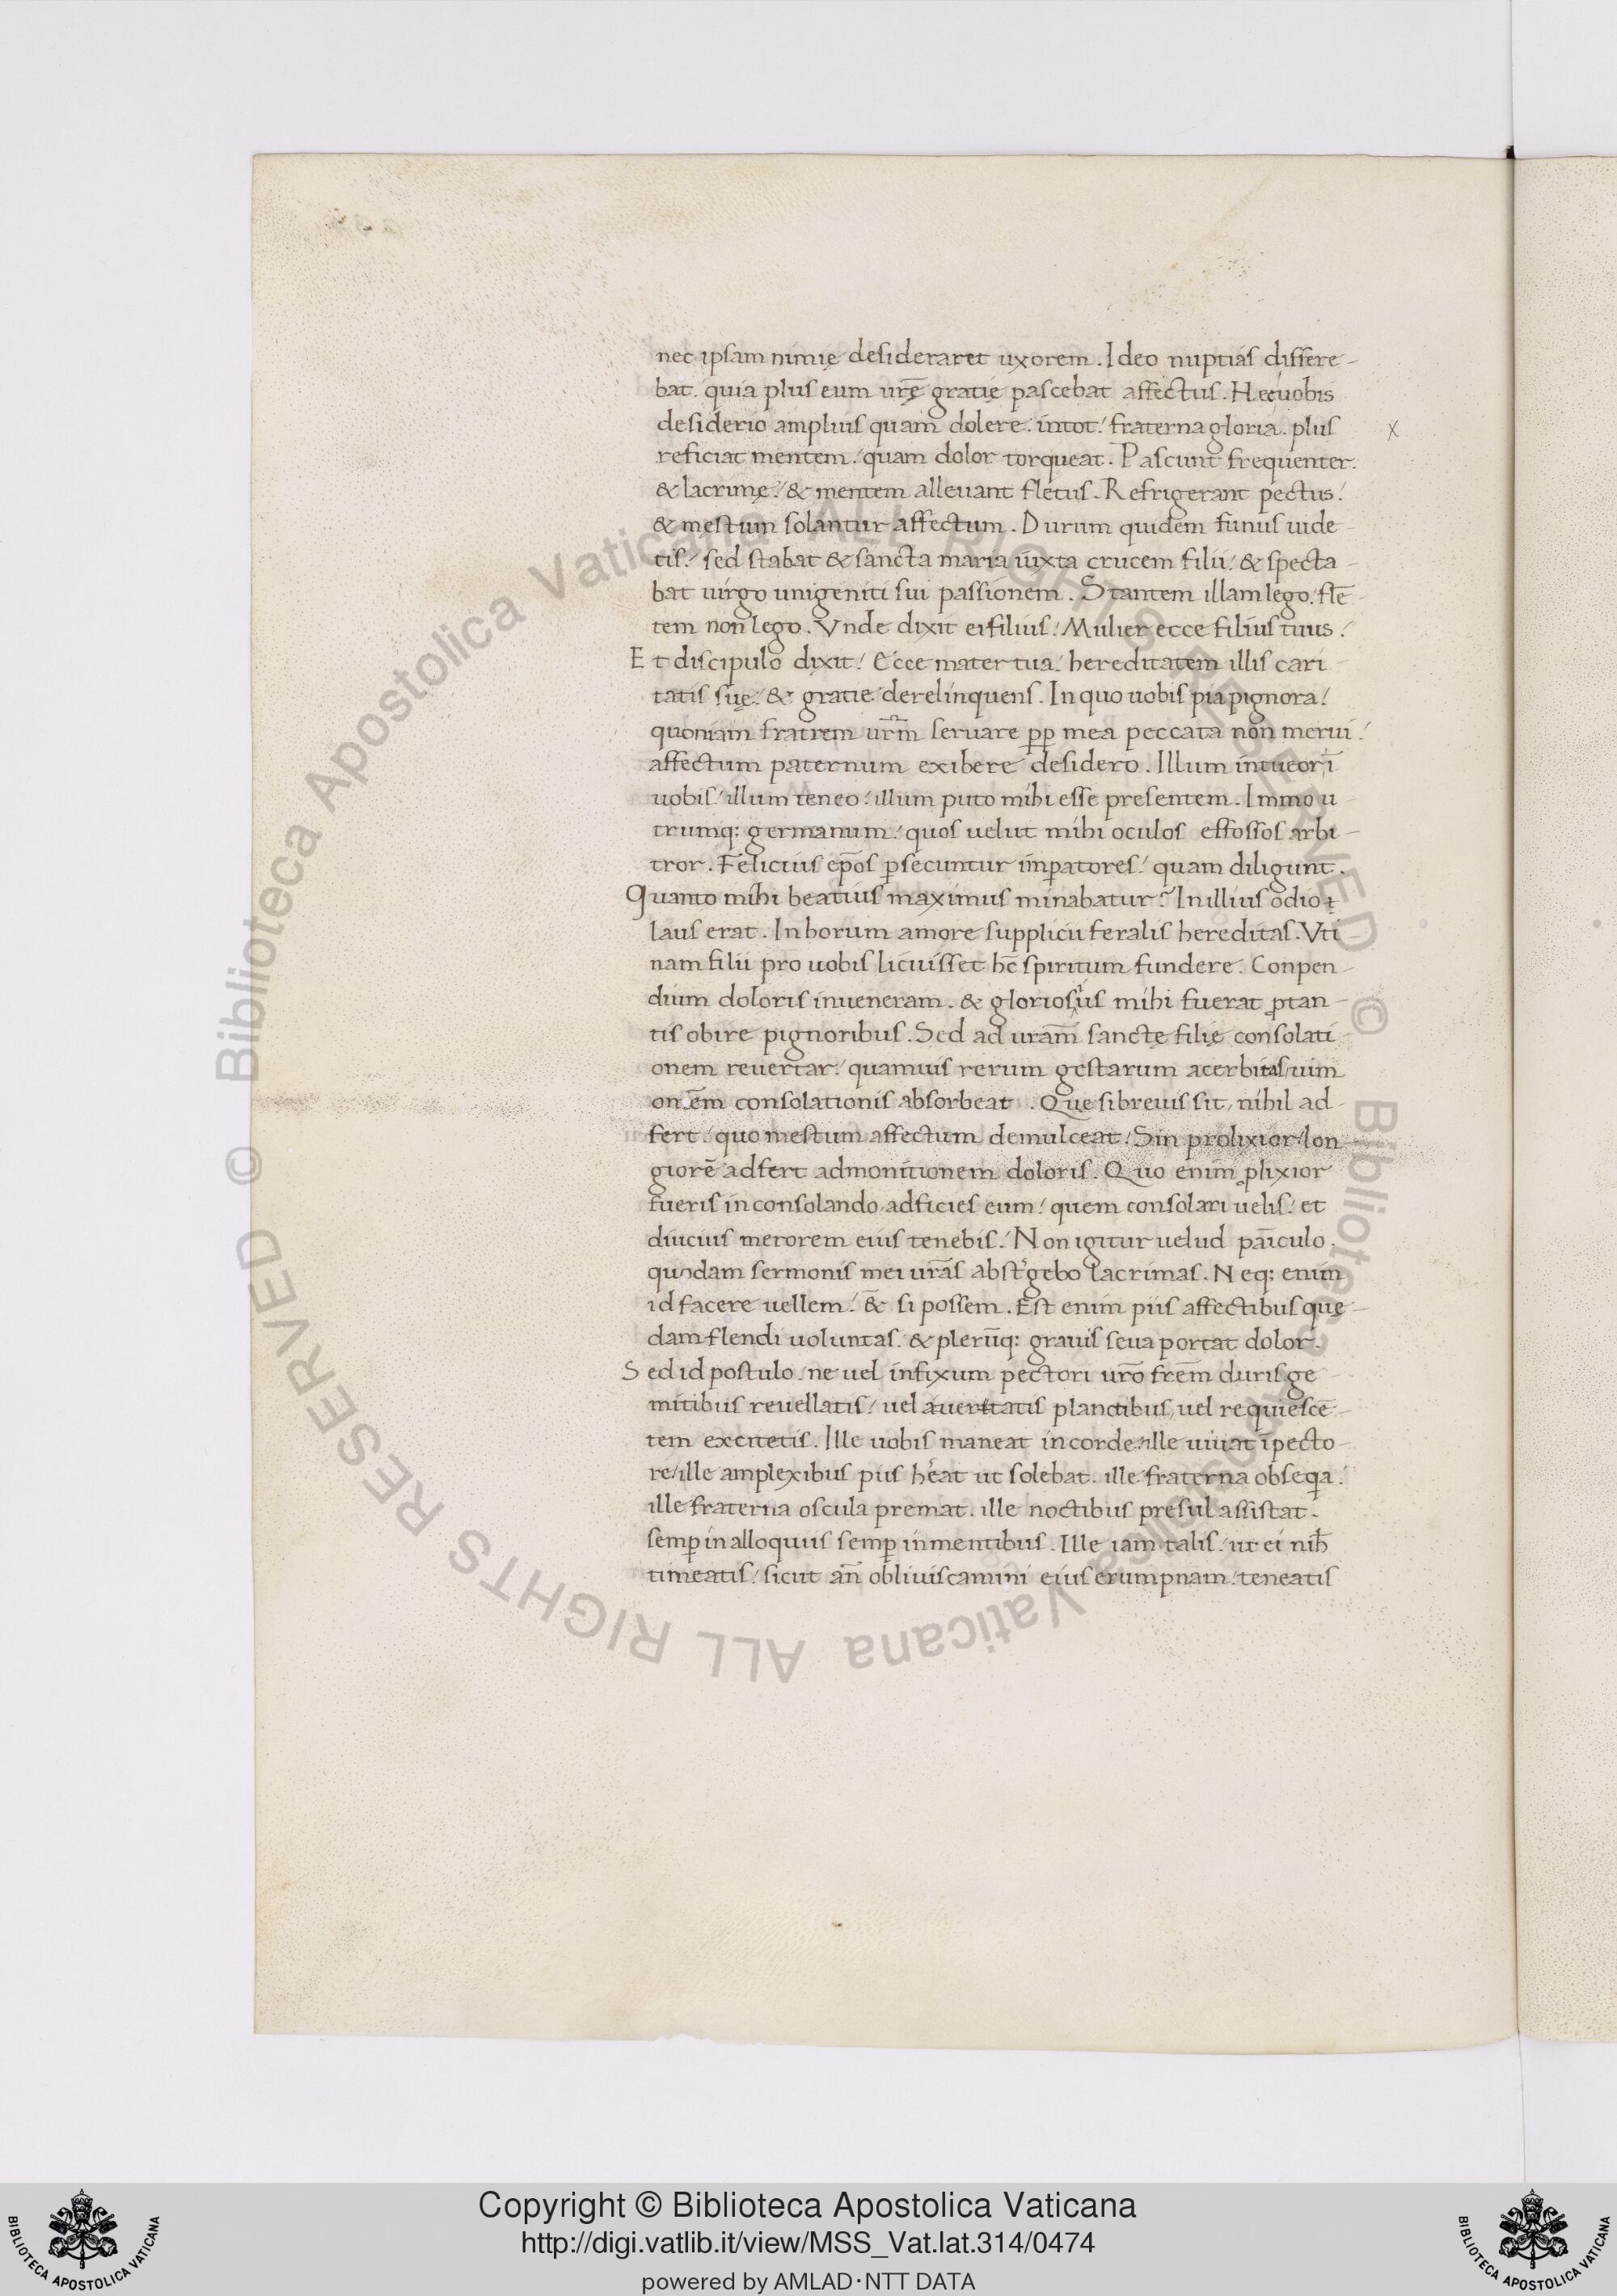 nec ipsam nimię desideraret uxorem. Ideo nuptias differe-
bat. quia plus eum ur̄ę gratię pascebat affectus. Hec uobis
desiderio amplius quam dolere. intot fraterna gloria. plus
x
reficiat mentem. quam dolor torqueat. Pascunt frequenter.
& lacrimę. & mentem alleuant fletus. Refrigerant pectus.
& męstum solantur affectum. Durum quidem funus uide-
tis. sed stabat & sancta maria iuxta crucem filii. & specta-
bat uirgo unigeniti sui passionem. Stantem illam lego. flē-
tem non lego. Vnde dixit ei filius. Mulier ecce filius tuus.
Et discipulo dixit. Ecce mater tua. hereditatem illis cari-
tatis suę. & gratie derelinquens. In quo uobis pia pignora.
quoniam fratrem ur̄m seruare p̱p mea peccata non merui.
affectum paternum exibere desidero. Illum intueor ī
uobis. illum teneo. illum puto mihi esse presentem. Immo u-
trumq; germanum. quos uelut mihi oculos effossos arbi-
tror. Felicius ep̄os p̱secuntur imp̱atores. quam diligunt.
Quanto mihi beatius maximus minabatur? In illius odio
laus erat. In horum amore supplicii feralis hereditas. Vti-
nam filii pro uobis licuisset hc̄ spiritum fundere. Conpen-
dium doloris inueneram. & gloriosius mihi fuerat ꝓ tan-
tis obire pignoribus. Sed ad uram̄ sanctę filię consolati-
onem reuertar. quamuis rerum gestarum acerbitas uim
om̄em consolationis absorbeat. Que si breuis sit, nihil ad-
fert. quo mestum affectum demulceat. Sin prolixior. lon-
giorē adfert admonitionem doloris. Quo enim ꝓlixior
fueris in consolando, adficies eum. quem consolari uelis. et
diucius merorem eius tenebis. Non igitur uelud pāiculo.
quodam sermonis mei urās abstⁱgebo lacrimas. Neq; enim
id facere uellem. & si possem. Est enim piis affectibus quę-
dam flendi uoluntas. & plerūq; grauis seua portat dolor.
Sed id postulo. ne uel infixum pectori ur̄o fr̄em duris ge-
mitibus reuellatis. uel auertatis planctibus, uel requiescē-
tem excitetis. Ille uobis maneat in corde. ille uiuat ī pecto-
re. ille amplexibus pus hēat ut solebat. ille fraterna obseq̱a.
ille fraterna oscula premat. ille noctibus presul assistat.
semp̱ in alloquiis semp̱ in mentibus. Ille iam talis. ut ei nih̄
timeatis. sicut an̄ obliuiscamini eius erumpnam. teneatis
Copyright © Biblioteca Apostolica Vaticana
http://digi.vatlib.it/view/MSS_Vat.lat.314/0474
powered by AMLAD·NTT DATA
BIBLIOTECA APOSTOLICA VATICANA
BIBLIOTECA APOSTOLICA VATICANA
© Biblioteca Apostolica Vaticana ALL RIGHTS RESERVED
© Biblioteca Apostolica Vaticana ALL RIGHTS RESERVED